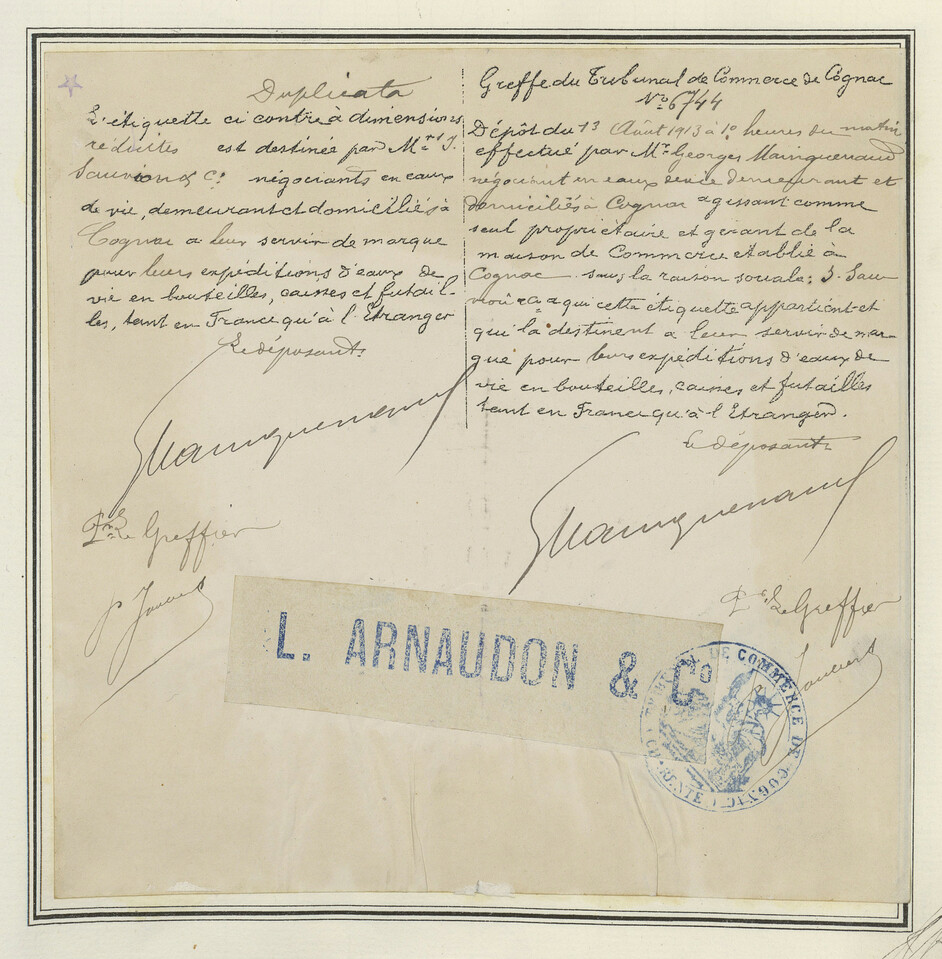 Duplicata
L'étiquette ci contre à dimensions
réduites est destinée par Mrs J.
Sauvion & Co négociants en eaux
de vie, demeurant et domiciliés à
Cognac a leur servir de marque
pour leurs expéditions d'eaux de
vie en bouteilles, caisses et futail-
les, tant en France qu'à l'Etranger
Le déposant
GMainguenaud
Pr Le Greffier
Greffe du Tribunal de Commerce de Cognac
No 6744
Dépôt du 13 Août 1913 à 10 heures du matin
effectué par Mr Georges Mainguenaud
négociant en eaux de vie demeurant et
domiciliés à Cognac agissant comme
seul propriétaire et gérant de la
maison de Commerce établie à
Cognac sous la raison sociale: J. Sau-
vion & Co a qui cette étiquette appartient et
qui la destinent a leur servir de mar-
que pour leurs expéditions d'eaux de
vie en bouteilles, caisses et futailles
tant en France qu'à l'Etranger.
Le déposant
GMainguenaud
Pr Le Greffier
L. ARNAUDON & Co
TRIBUNAL DE COMMERCE DE COGNAC
(CHARENTE)